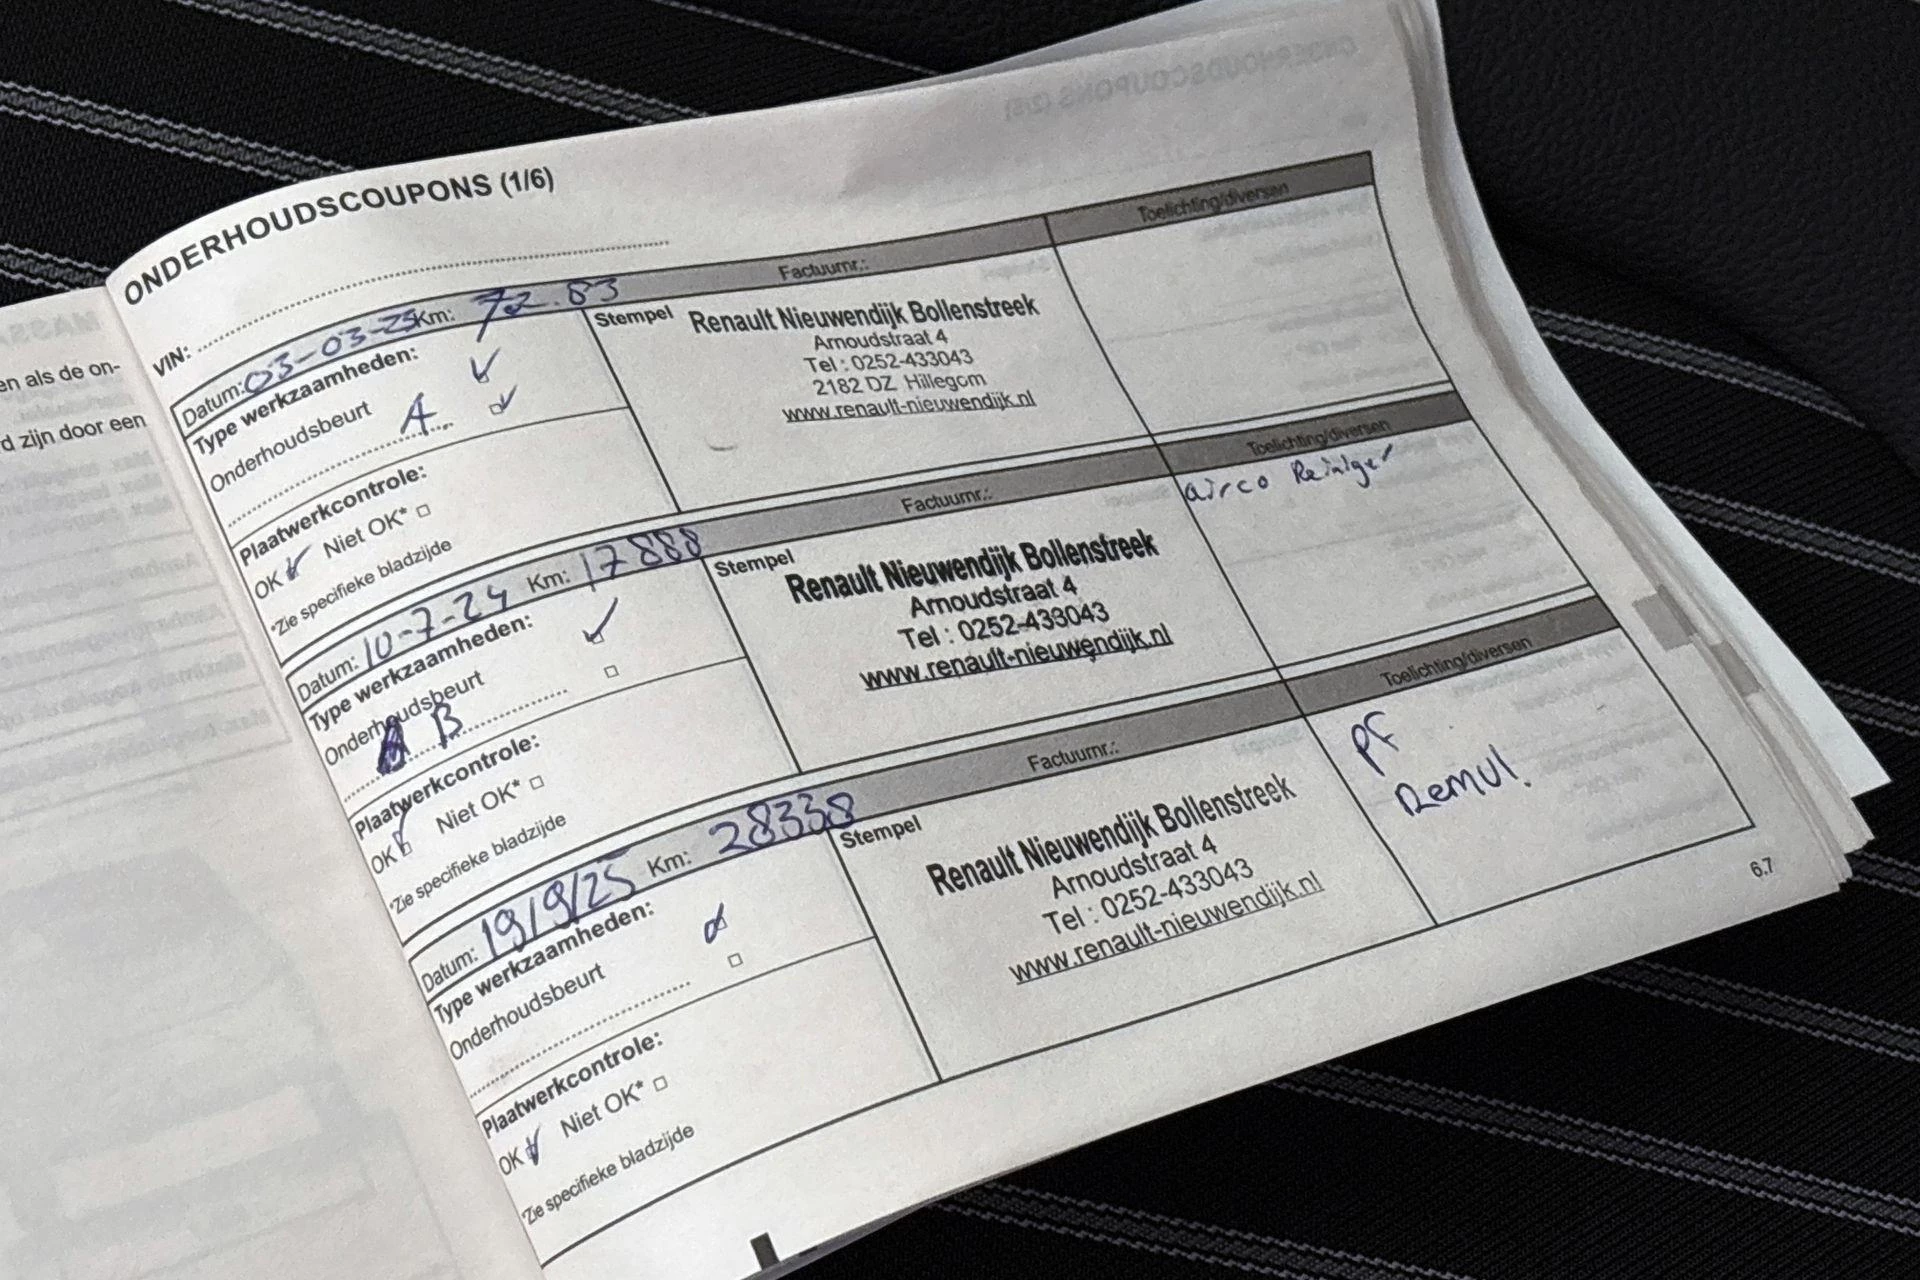 ONDERHOUDSCOUPONS (1/6)
VIN:
Datum: 03-03-25 Km: 72.83 Factuurnr.: Toelichting/diversen
Type werkzaamheden:
Onderhoudsbeurt
A
Plaatwerkcontrole:
OK Niet OK*
*Zie specifieke bladzijde
Stempel
Renault Nieuwendijk Bollenstreek
Arnoudstraat 4
Tel : 0252-433043
2182 DZ Hillegom
www.renault-nieuwendijk.nl
Datum: 10-7-24 Km: 17888 Factuurnr.: Toelichting/diversen
Type werkzaamheden:
Onderhoudsbeurt
B
Plaatwerkcontrole:
OK Niet OK*
*Zie specifieke bladzijde
Stempel
Renault Nieuwendijk Bollenstreek
Arnoudstraat 4
Tel : 0252-433043
www.renault-nieuwendijk.nl
airco Reiniger
Datum: 19/9/25 Km: 28338 Factuurnr.: Toelichting/diversen
Type werkzaamheden:
Onderhoudsbeurt
Plaatwerkcontrole:
OK Niet OK*
*Zie specifieke bladzijde
Stempel
Renault Nieuwendijk Bollenstreek
Arnoudstraat 4
Tel : 0252-433043
www.renault-nieuwendijk.nl
PF
Remvl.
6.7
en als de on-
d zijn door een